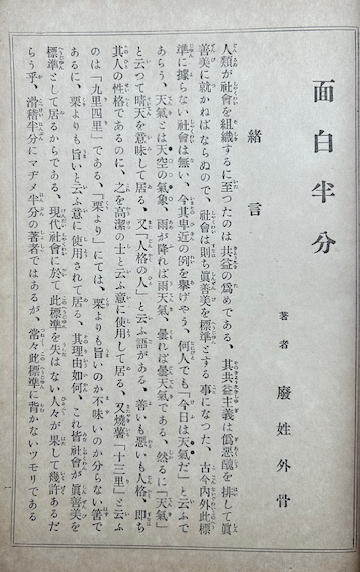 面白半分
著者 廢姓外骨
緒言
人類が社會を組織するに至つたのは共益の爲めである、其共益主義は僞惡醜を排して眞
善美に就かねばならぬので、社會は則ち眞善美を標準とする事になつた、古今內外此標
準に據らない社會は無い、今其卑近の例を擧げやう、何人でも「今日は天氣だ」と云ふで
あらう、天氣とは天空の氣象、雨が降れば雨天氣、曇れば曇天氣である、然るに「天氣」
と云つて晴天を意味して居る。又「人格の人」と云ふ語がある。善いも惡いも人格、即ち
其人の性格であるのに、之を高潔の士と云ふ意に使用して居る、又燒薯「十三里」と云ふ
のは「九里四里」である、「栗より」にては、栗よりも旨いのか不味いのか分らない筈で
あるに、栗よりも旨いと云ふ意に使用されて居る、其理由如何、これ皆社會が眞善美を
標準として居るからである、現代社會に於て此標準を失はない人々が果して幾許あるだ
らう乎、滑稽半分にマヂメ半分の著者ではあるが、常々此標準に背かないツモリである